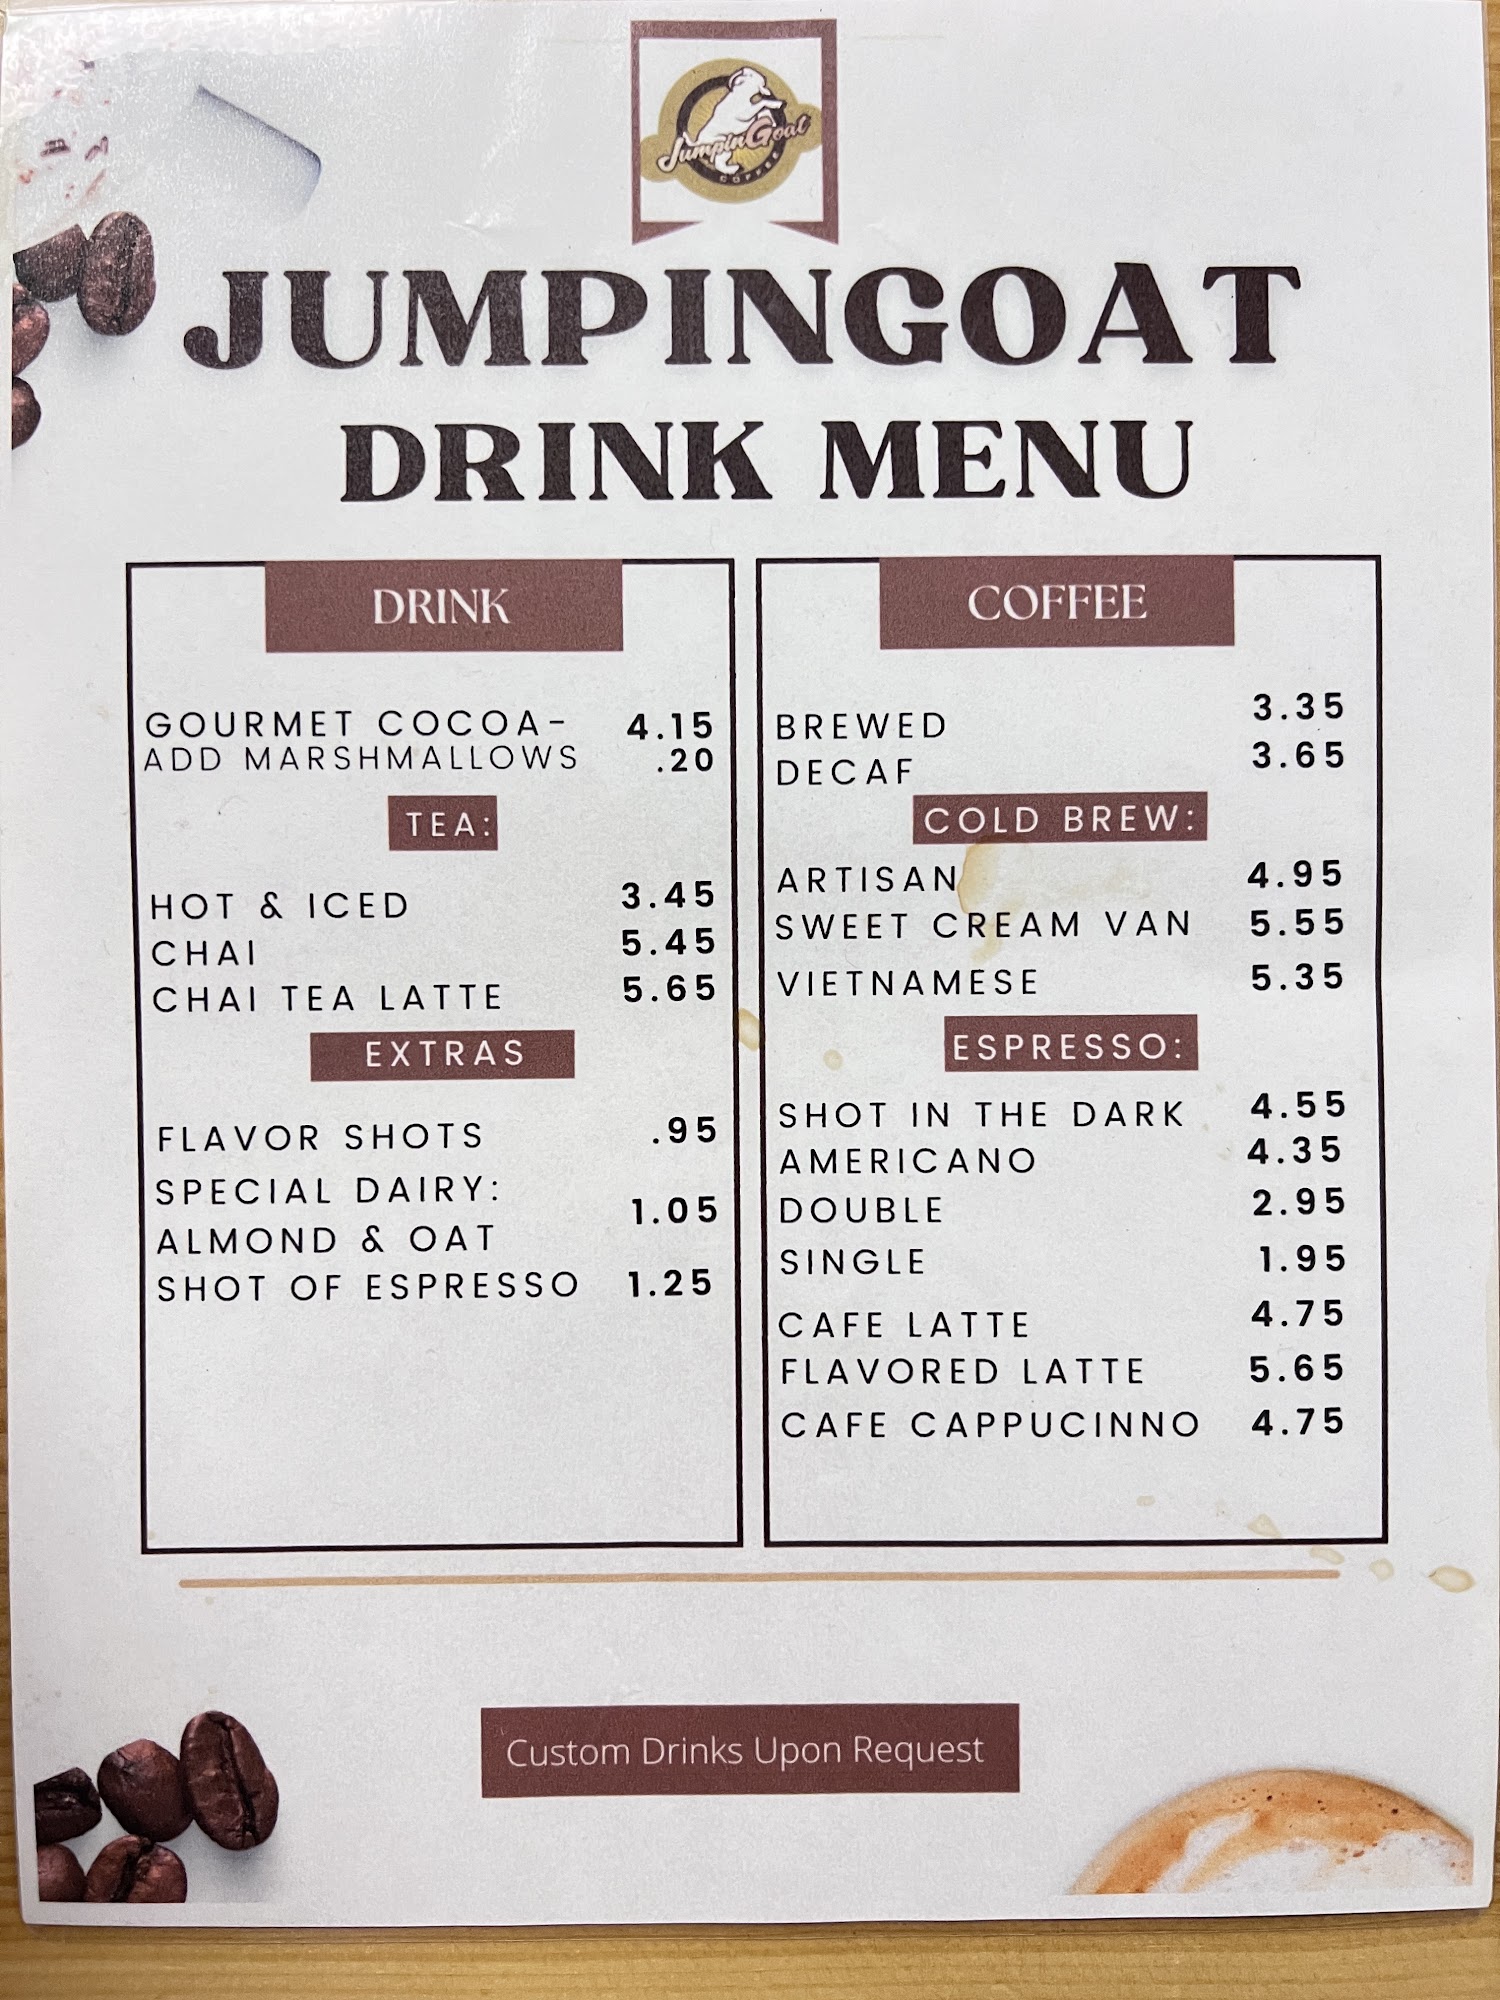 JumpinGoat
COFFEE
JUMPINGOAT
DRINK MENU
DRINK
GOURMET COCOA- 4.15
ADD MARSHMALLOWS .20
TEA:
HOT & ICED 3.45
CHAI 5.45
CHAI TEA LATTE 5.65
EXTRAS
FLAVOR SHOTS .95
SPECIAL DAIRY:
ALMOND & OAT 1.05
SHOT OF ESPRESSO 1.25
COFFEE
BREWED 3.35
DECAF 3.65
COLD BREW:
ARTISAN 4.95
SWEET CREAM VAN 5.55
VIETNAMESE 5.35
ESPRESSO:
SHOT IN THE DARK 4.55
AMERICANO 4.35
DOUBLE 2.95
SINGLE 1.95
CAFE LATTE 4.75
FLAVORED LATTE 5.65
CAFE CAPPUCINNO 4.75
Custom Drinks Upon Request